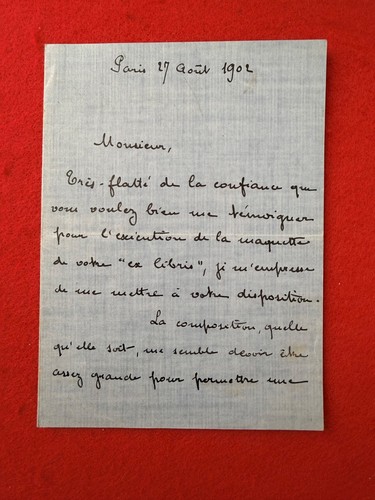 Paris 27 Août 1902
Monsieur,
Très-flatté de la confiance que
vous voulez bien me témoigner
pour l'exécution de la maquette
de votre "ex libris", je m'empresse
de me mettre à votre disposition.
La composition, quelle
qu'elle soit, me semble devoir être
assez grande pour permettre une